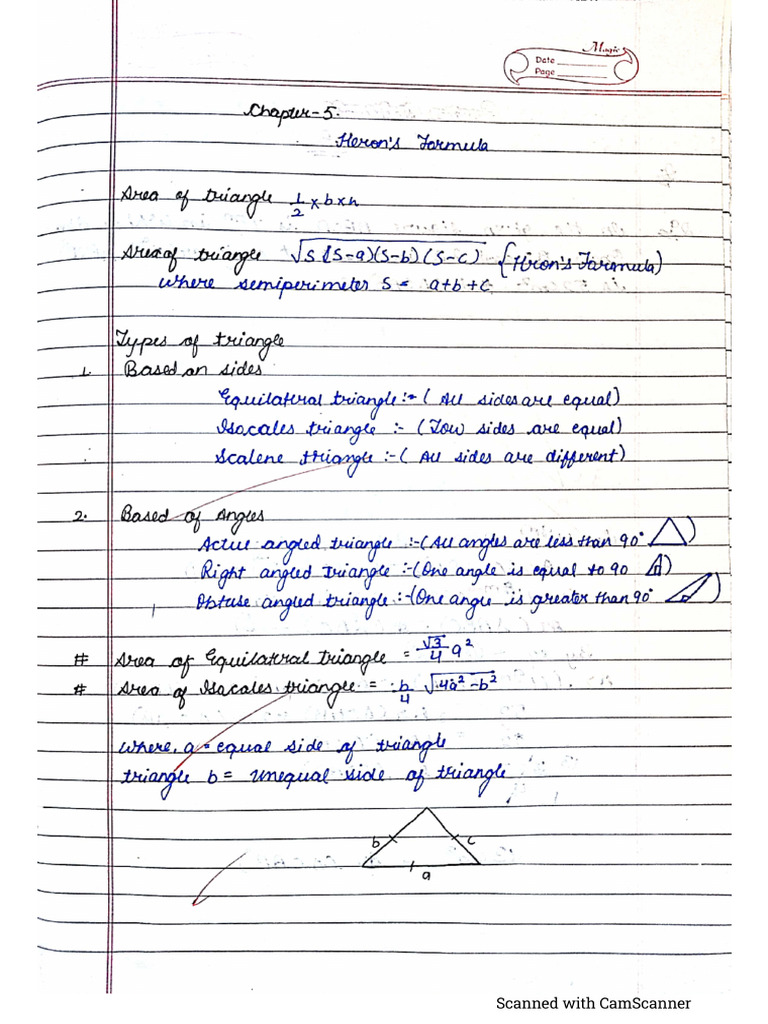 Magic
Date
Page
Chapter-5.
Heron's Formula
Area of triangle 1/2 x b x h
Area of triangle √S(S-a)(S-b)(S-c) {Hiron's Faramula)
where semiperimeter S = a+b+c
Types of triangle
1. Based on sides
Equilatral triangle:- ( All sides are equal)
Isacales triangle :- (Tow sides are equal)
Scalene triangle :- ( All sides are different)
2. Based of Angles
Actue angled triangle :-(All angles are less than 90°)
Right angled Triangle :-(One angle is equal to 90)
Obtuse angled triangle :-(One angle is greater than 90°)
# Area of Equilatral triangle = √3/4 a²
# Area of Isacales triangle = b/4 √4a²-b²
where, a = equal side of triangle
triangle b = unequal side of triangle
b c
a
Scanned with CamScanner